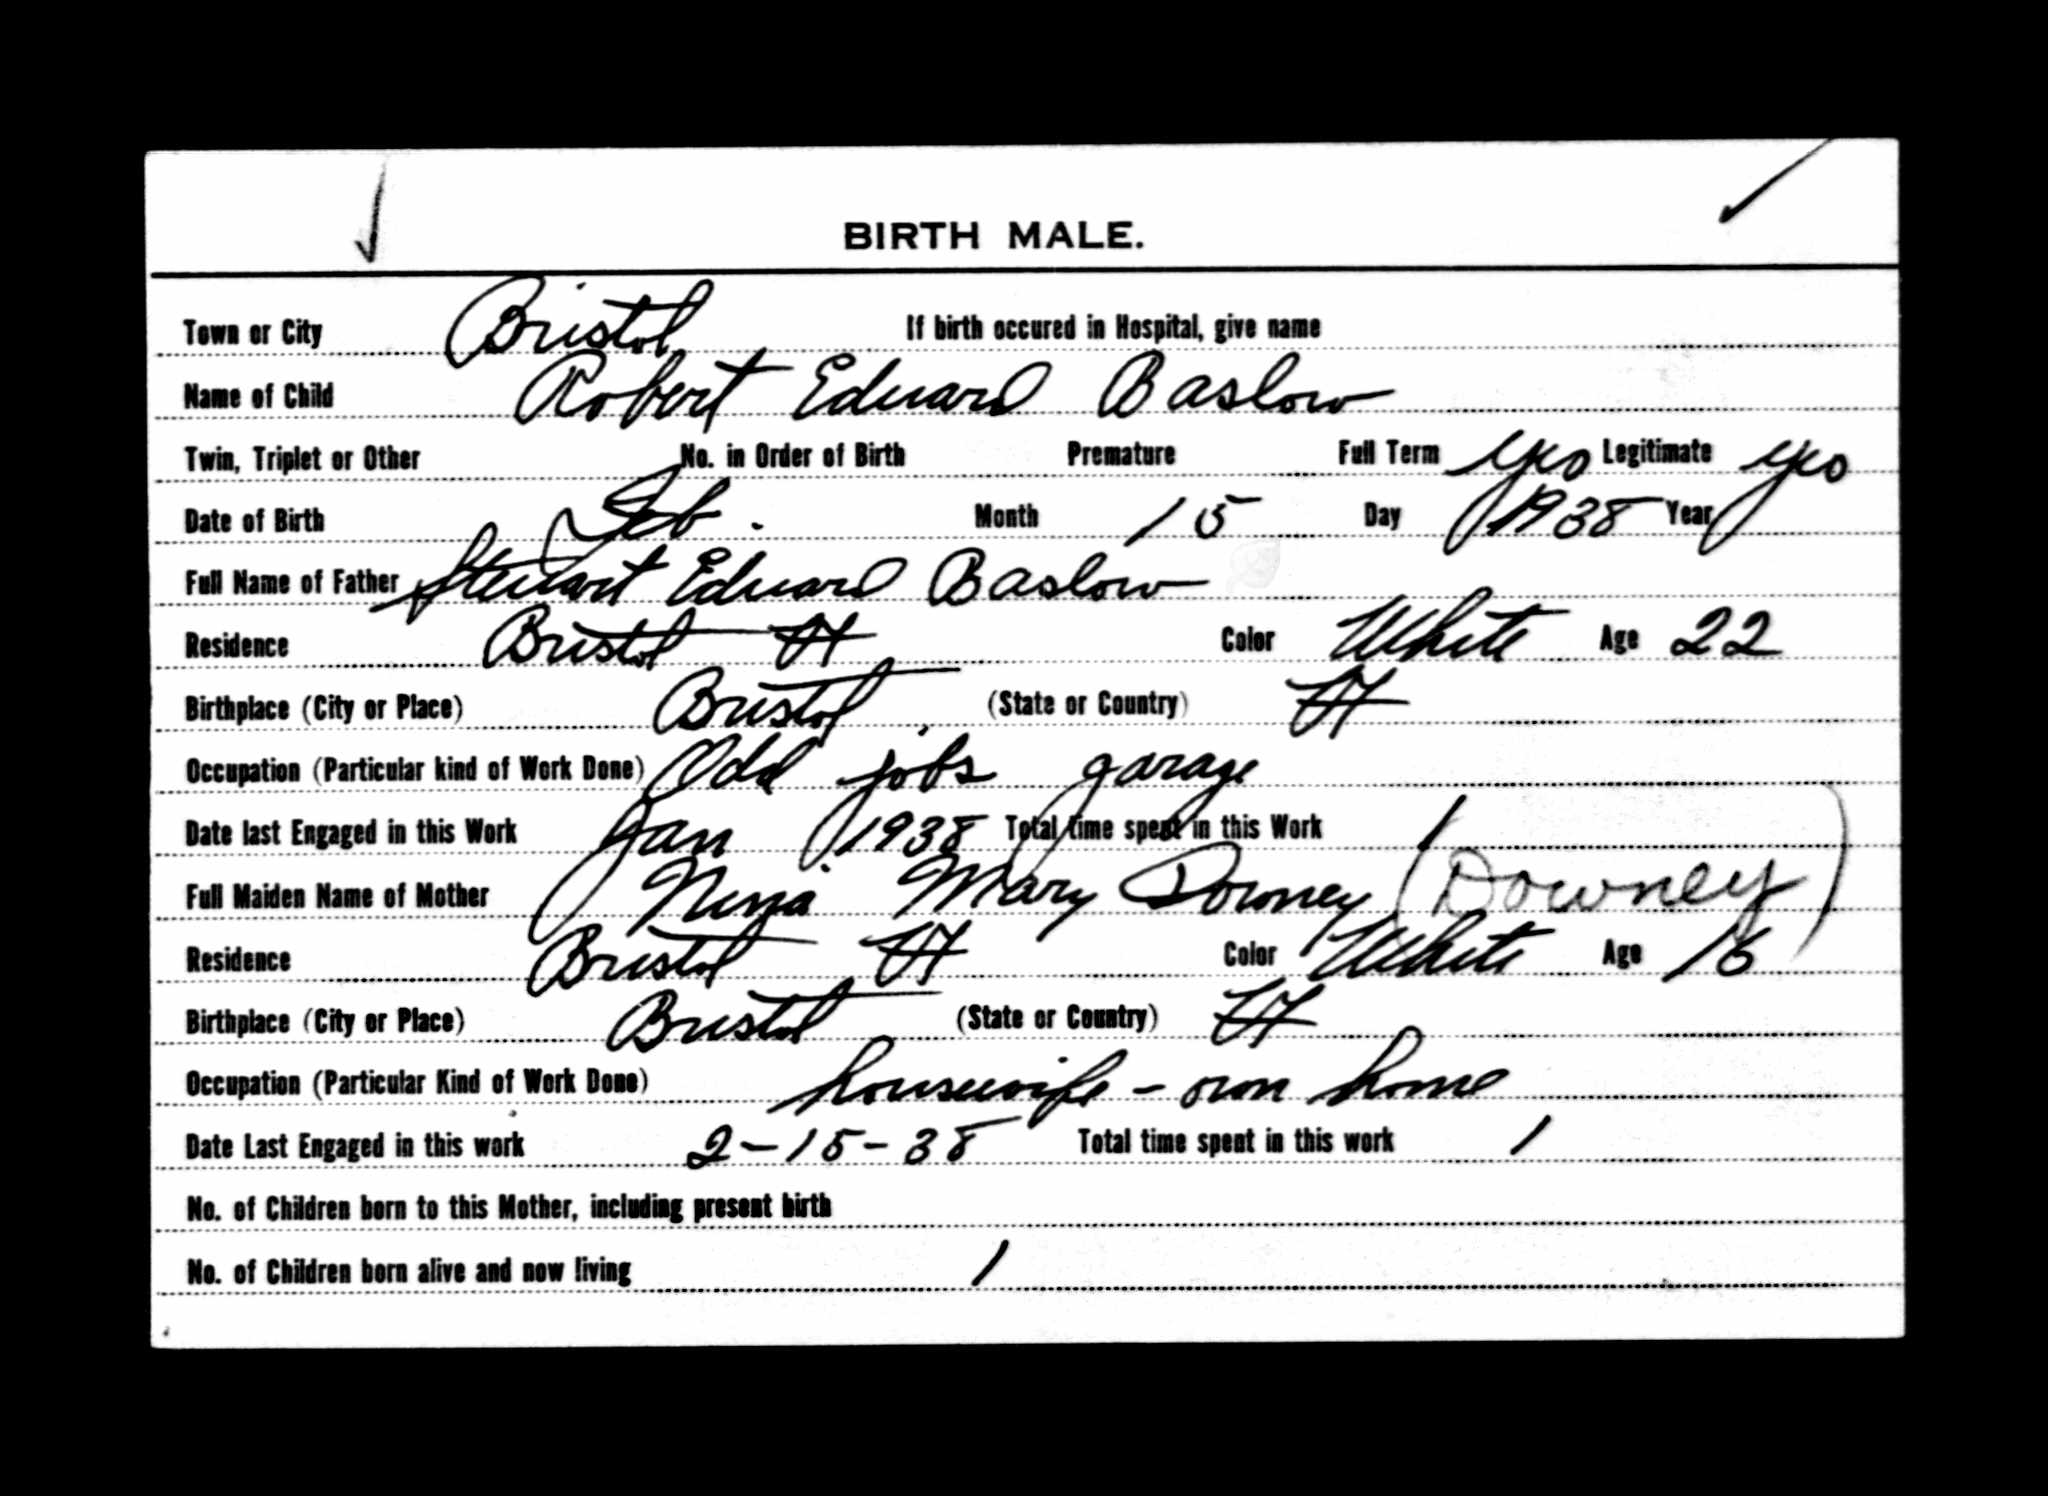 BIRTH MALE.
Town or City Bristol If birth occured in Hospital, give name
Name of Child Robert Edward Baslow
Twin, Triplet or Other No. in Order of Birth Premature Full Term yes Legitimate yes
Date of Birth Feb. Month 15 Day 1938 Year
Full Name of Father Stewart Edward Baslow
Residence Bristol Vt Color White Age 22
Birthplace (City or Place) Bristol, (State or Country) Vt
Occupation (Particular kind of Work Done) Odd jobs garage
Date last Engaged in this Work Jan 1938 Total time spent in this Work 1
Full Maiden Name of Mother Nina Mary Downey (Downey)
Residence Bristol Vt Color White Age 16
Birthplace (City or Place) Bristol (State or Country) Vt
Occupation (Particular Kind of Work Done) housewife - own home
Date Last Engaged in this work 2-15-38 Total time spent in this work 1
No. of Children born to this Mother, including present birth
No. of Children born alive and now living 1